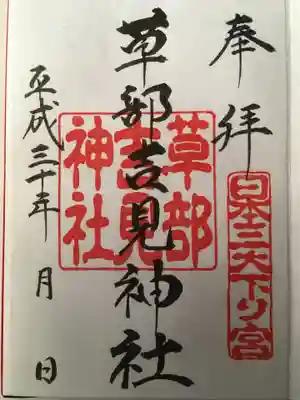 奉拝
日本三大下り宮
草部吉見神社
草部吉見神社
平成三十年 月 日